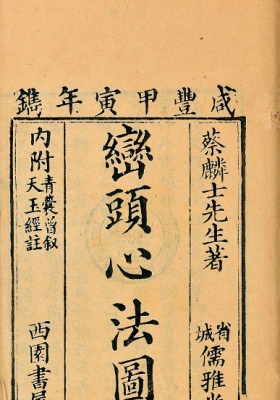 咸豐甲寅年鐫
蔡麟士先生著
省城儒雅堂
巒頭心法圖
內附青囊曾叙天玉經註
西園書屋